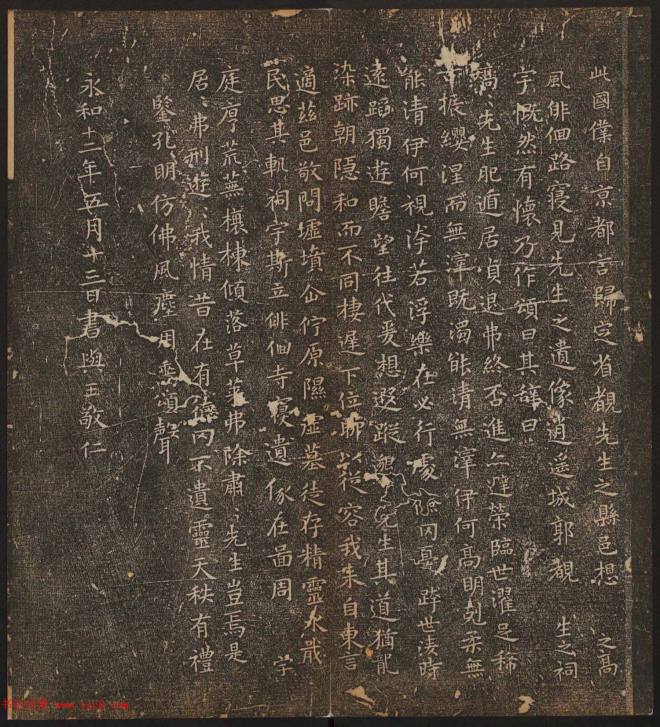 此國僕自京都言歸定省覩先生之縣邑想 之高
風俳佪路寝見先生之遺像逍遥城郭觀 生之祠
宇慨然有懷乃作頌曰其辞曰
矯〻先生肥遁居貞退弗終否進亦避榮臨世濯足稀
古振纓涅而無滓既濁能清無滓伊何高明剋柔無
能清伊何視洿若浮樂在必行處儉罔憂 跨世凌時
遠蹈獨遊瞻望往代爰想遐蹤邈 先生其道猶龍
染跡朝隱和而不同棲遲下位聊以從容我来自東言
適茲邑敬問墟墳企佇原隰虚墓徒存精靈永戢
民思其軌祠宇斯立俳佪寺寝遺像在啚周 学
庭序荒蕪榱棟傾落草萊弗除肅〻先生豈焉是
居〻弗刑遊〻我情昔在有德罔不遺靈天秩有禮
鍳孔明仿佛風塵用垂頌聲
永和十二年五月十三日書與王敬仁